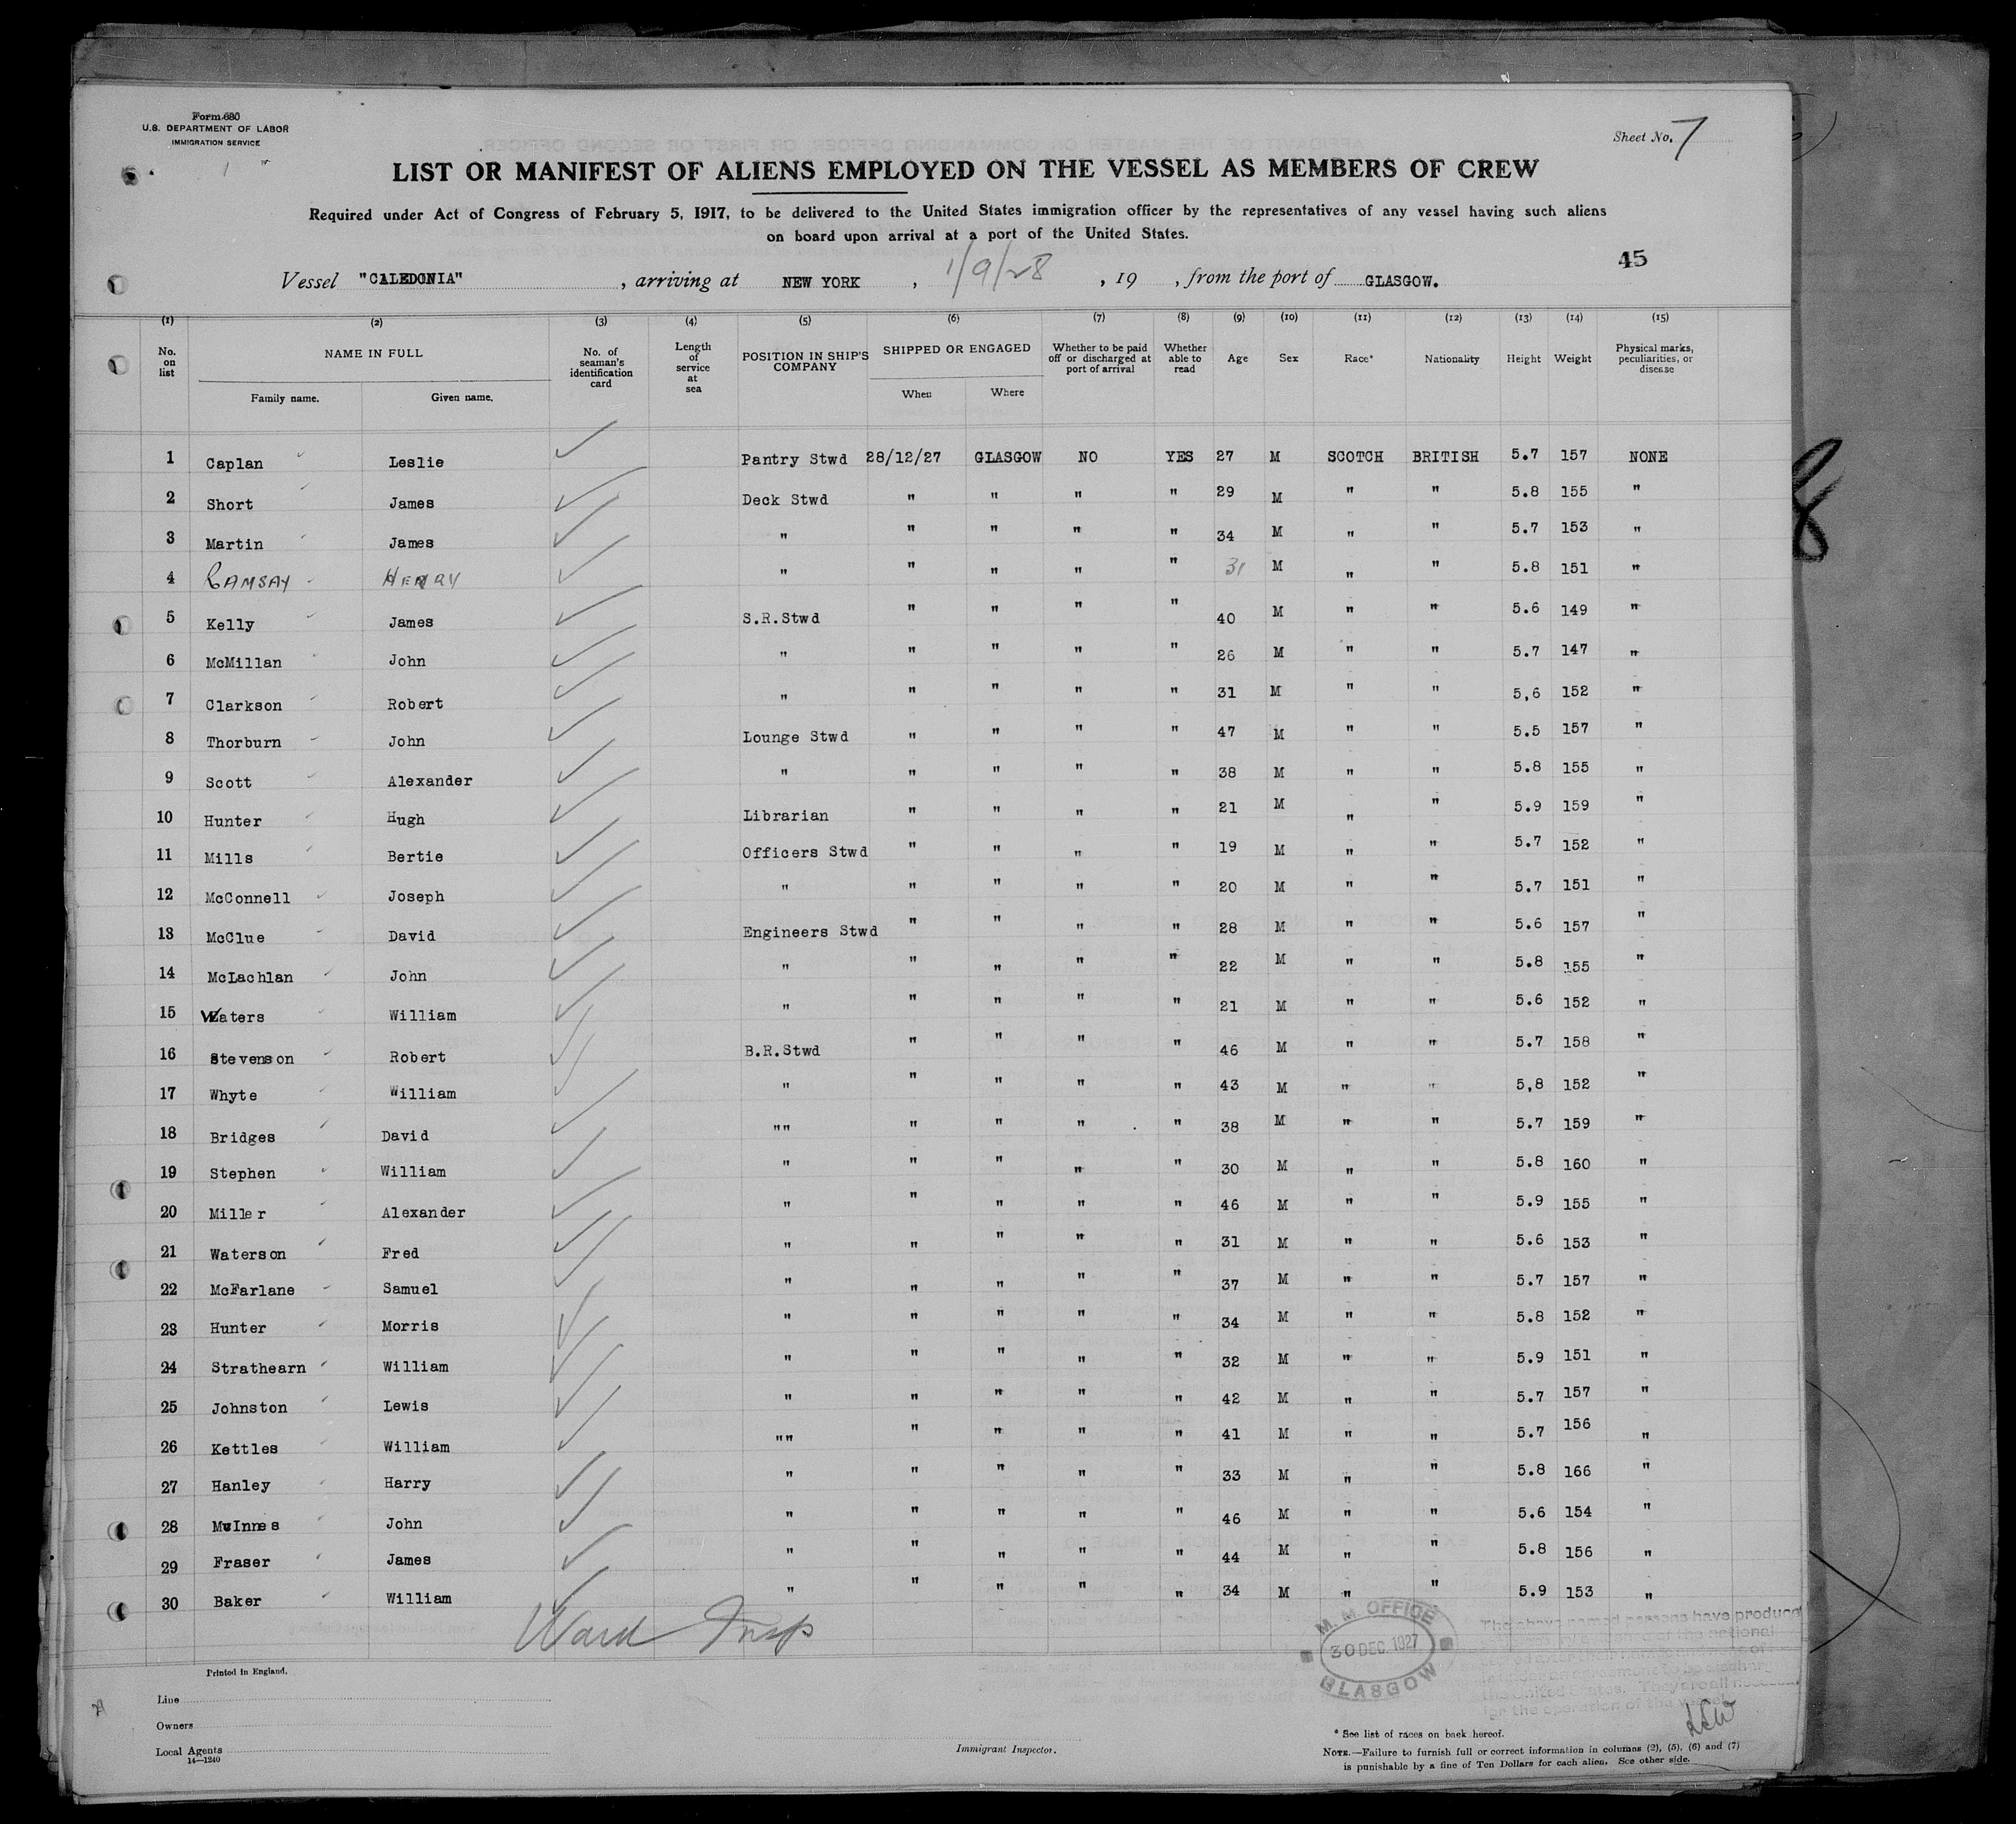 Form 680
U.S. DEPARTMENT OF LABOR
IMMIGRATION SERVICE
Sheet No. 7
LIST OR MANIFEST OF ALIENS EMPLOYED ON THE VESSEL AS MEMBERS OF CREW
Required under Act of Congress of February 5, 1917, to be delivered to the United States immigration officer by the representatives of any vessel having such aliens
on board upon arrival at a port of the United States.
45
Vessel "CALEDONIA", arriving at NEW YORK, 1/9/28, 19 , from the port of GLASGOW.
(1) (2) (3) (4) (5) (6) (7) (8) (9) (10) (11) (12) (13) (14) (15)
No. on list NAME IN FULL Family name. Given name. No. of seaman's identification card Length of service at sea POSITION IN SHIP'S COMPANY SHIPPED OR ENGAGED When Where Whether to be paid off or discharged at port of arrival Whether able to read Age Sex Race* Nationality Height Weight Physical marks, peculiarities, or disease
1 Caplan Leslie Pantry Stwd 28/12/27 GLASGOW NO YES 27 M SCOTCH BRITISH 5.7 157 NONE
2 Short James Deck Stwd " " " " 29 M " " 5.8 155 "
3 Martin James " " " " " 34 M " " 5.7 153 "
4 RAMSAY HENRY " " " " " 31 M " " 5.8 151 "
5 Kelly James S.R.Stwd " " " " 40 M " " 5.6 149 "
6 McMillan John " " " " " 26 M " " 5.7 147 "
7 Clarkson Robert " " " " " 31 M " " 5,6 152 "
8 Thorburn John Lounge Stwd " " " " 47 M " " 5.5 157 "
9 Scott Alexander " " " " " 38 M " " 5.8 155 "
10 Hunter Hugh Librarian " " " " 21 M " " 5.9 159 "
11 Mills Bertie Officers Stwd " " " " 19 M " " 5.7 152 "
12 McConnell Joseph " " " " " 20 M " " 5.7 151 "
13 McClue David Engineers Stwd " " " " 28 M " " 5.6 157 "
14 McLachlan John " " " " " 22 M " " 5.8 155 "
15 Waters William " " " " " 21 M " " 5.6 152 "
16 Stevenson Robert B.R.Stwd " " " " 46 M " " 5.7 158 "
17 Whyte William " " " " " 43 M " " 5,8 152 "
18 Bridges David "" " " " " 38 M " " 5.7 159 "
19 Stephen William " " " " " 30 M " " 5.8 160 "
20 Miller Alexander " " " " " 46 M " " 5.9 155 "
21 Waterson Fred " " " " " 31 M " " 5.6 153 "
22 McFarlane Samuel " " " " " 37 M " " 5.7 157 "
23 Hunter Morris " " " " " 34 M " " 5.8 152 "
24 Strathearn William " " " " " 32 M " " 5.9 151 "
25 Johnston Lewis " " " " " 42 M " " 5.7 157 "
26 Kettles William "" " " " " 41 M " " 5.7 156 "
27 Hanley Harry " " " " " 33 M " " 5.8 166 "
28 McInnes John " " " " " 46 M " " 5.6 154 "
29 Fraser James " " " " " 44 M " " 5.8 156 "
30 Baker William " " " " " 34 M " " 5.9 153 "
Ward Insp
M.M. OFFICE
30 DEC. 1927
GLASGOW
The above named persons have produced
the United States. They are all necessary
for the operation of the vessel.
Printed in England.
Line
Owners
Local Agents
14—1240
Immigrant Inspector.
* See list of races on back hereof.
NOTE.—Failure to furnish full or correct information in columns (2), (5), (6) and (7)
is punishable by a fine of Ten Dollars for each alien. See other side.